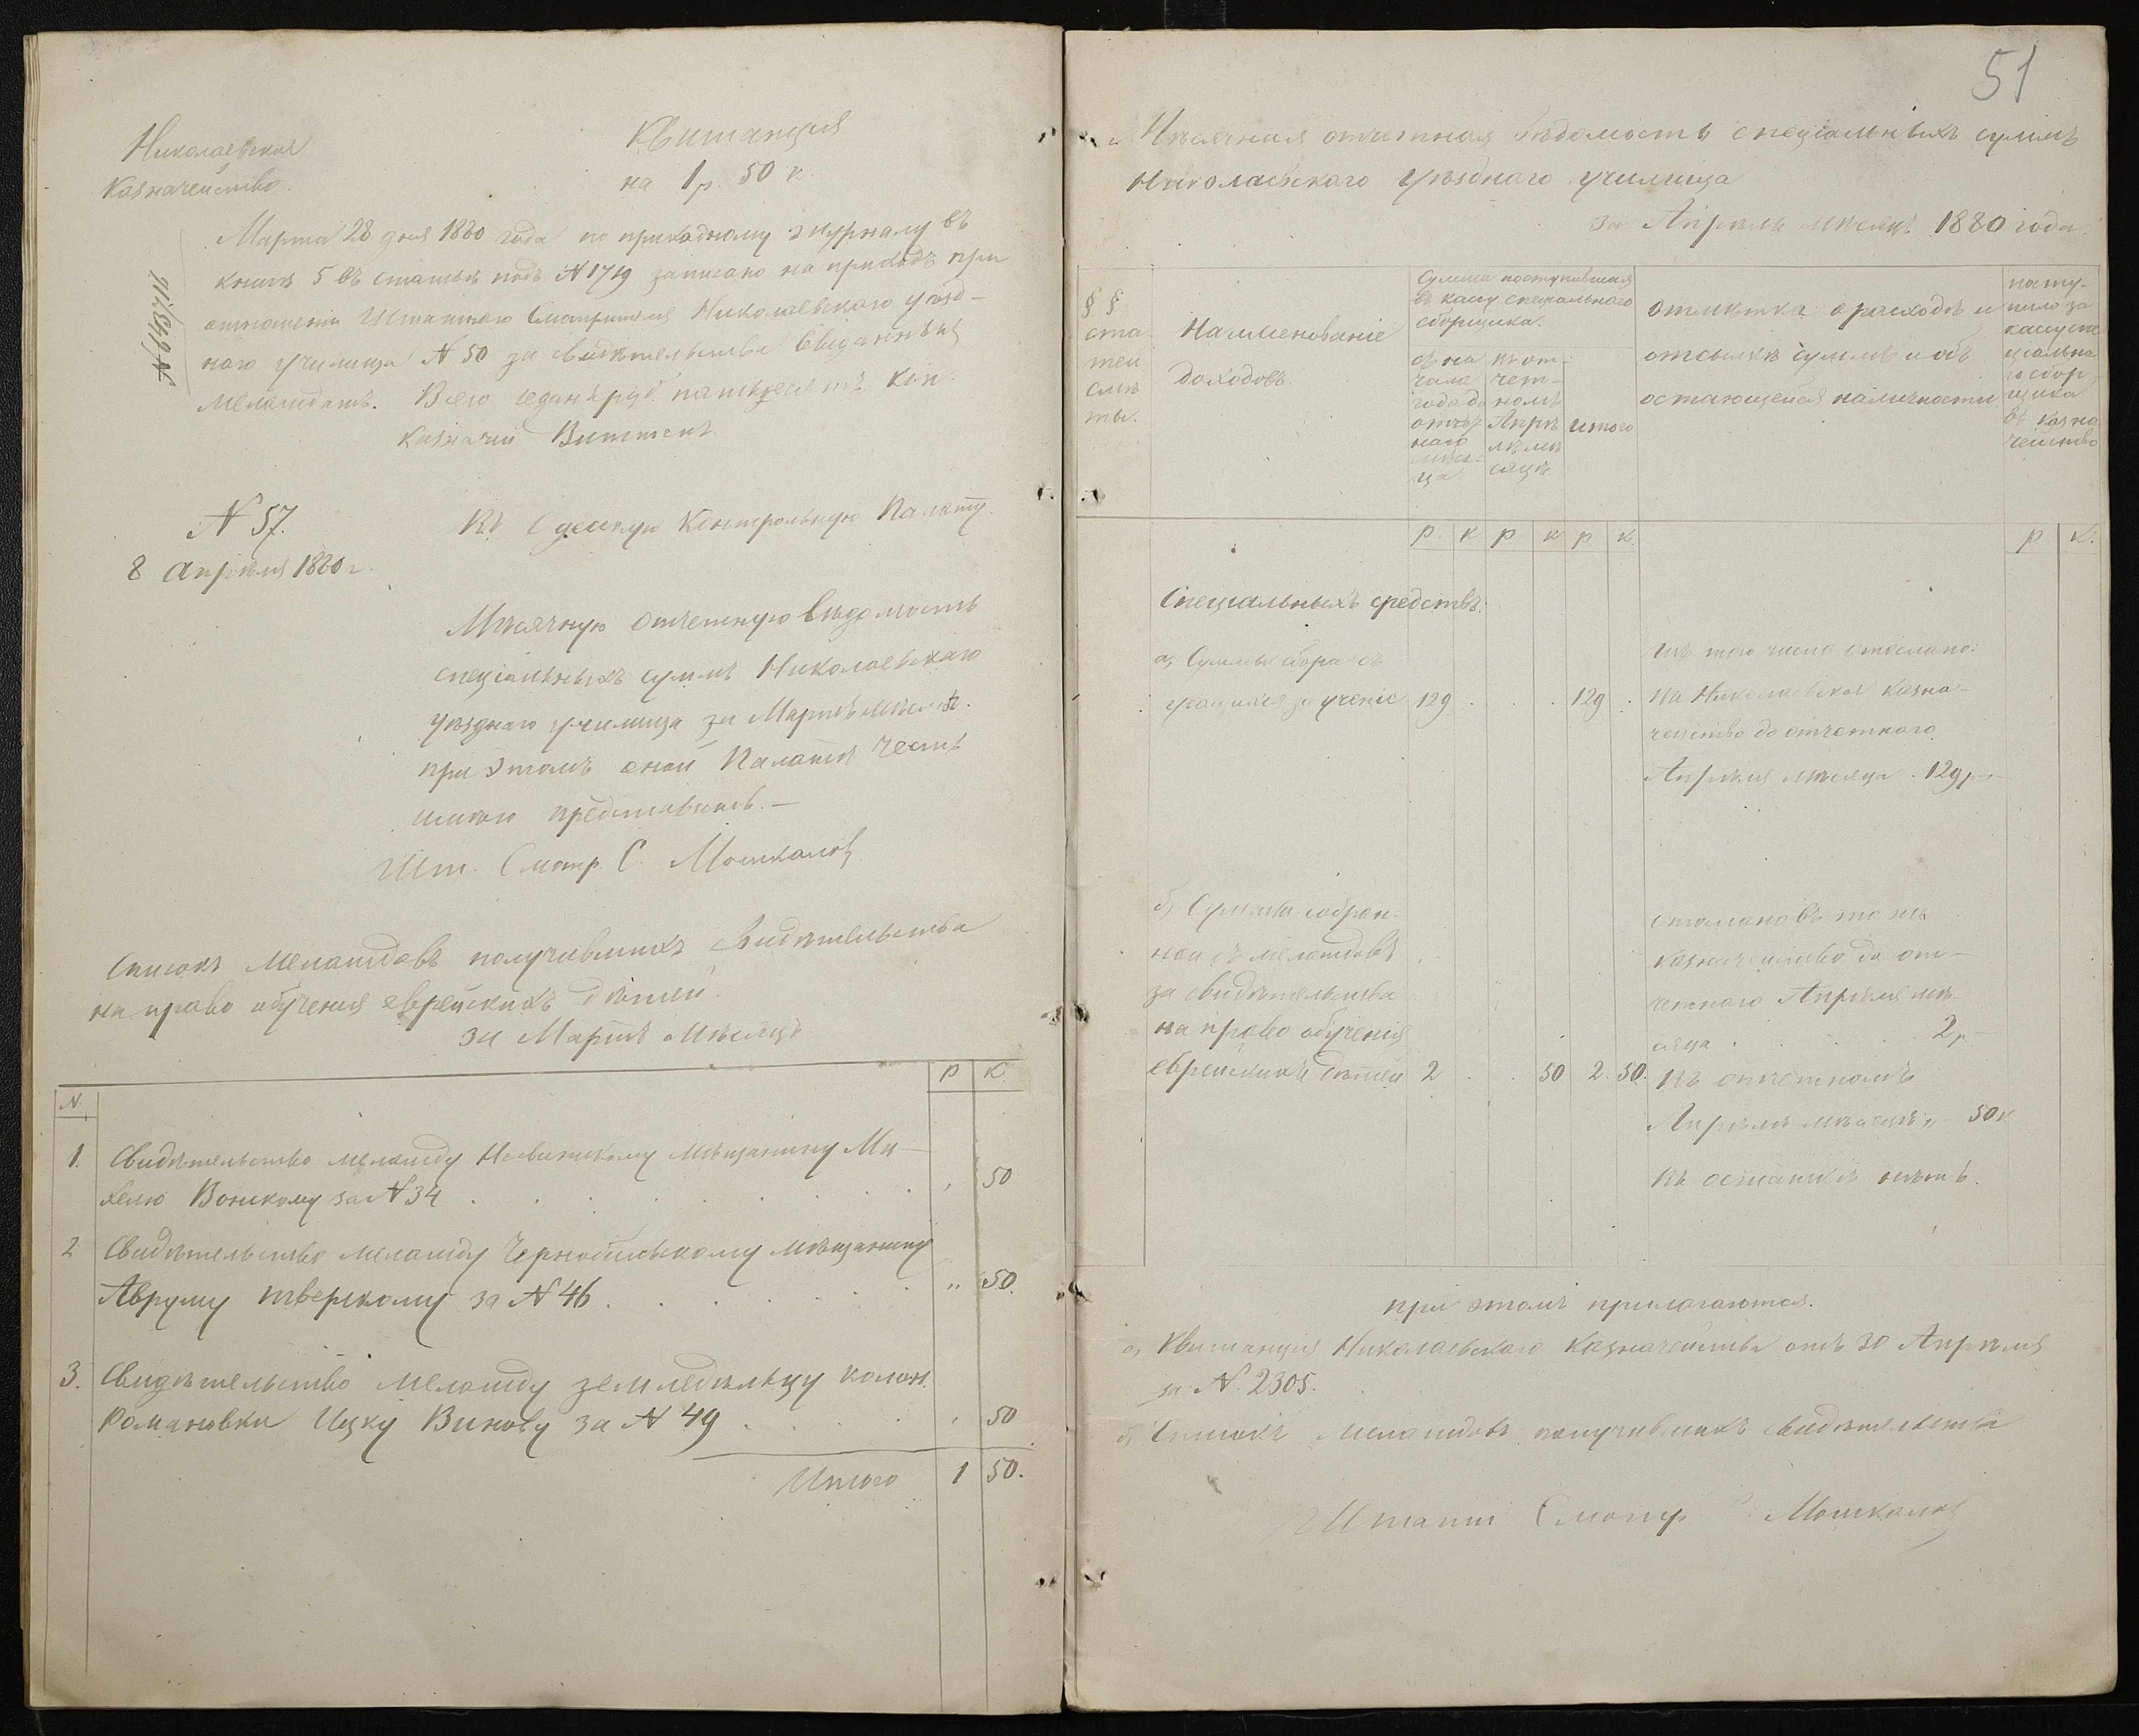 Николаевское
Казначейство.
Квитанция
на 1 р. 50 к.
Марта 28 дня 1880 года по приходному журналу въ
книгѣ 5 въ статьѣ подъ № 1719 записано на приходъ при
отношеніи Штатнаго Смотрителя Николаевскаго уѣзд-
наго училища № 50 за свидѣтельства выданныя
меламдамъ. Всего одинъ руб. пятьдесятъ коп.
Казначей
№ 57.
8 Апрѣля 1880 г.
Въ Одесскую Контрольную Палату.
Мѣсячную отчетную вѣдомость
спеціальныхъ суммъ Николаевскаго
уѣзднаго училища за Мартъ мѣсяцъ.
при этомъ оной Палатѣ честь
имѣю представить. —
Шт. Смотр С. Мошкалов
Списокъ меламдовъ получившихъ свидѣтельства
на право обученія еврейскихъ дѣтей
за Мартъ мѣсяцъ
№ Р К
1. Свидѣтельство меламду мѣщанину Ми-
хелю за № 34 . . . . . . „ 50
2 Свидѣтельство меламду Чернобыльскому мѣщанину
Авруму Тверскому за № 46 . . . . . „ 50.
3. Свидѣтельство меламду земледѣльцу колон.
Романовки Ицку Винову за № 49 . . . „ 50
Итого 1 50.
51
Мѣсячная отчетная вѣдомость спеціальныхъ суммъ
Николаевскаго уѣзднаго училища
за Апрѣль мѣсяцъ 1880 года.
§ §
ста
тей
смѣ
ты.
Наименованіе
доходовъ.
Сумма поступившая
въ кассу спеціальнаго
сборщика.
съ на
чала
года до
отчет
наго
мѣся-
ца
въ от-
чет-
номъ
Апрѣ
лѣ мѣ
сяцѣ
итого
отмѣтка о расходѣ и
отсылкѣ суммъ и объ
остающейся наличности.
посту-
пило за
кассу спе
ціальна
го сбор
щика
въ казна
чейство
Р. К Р К Р К. Р К.
Спеціальныхъ средствъ.
а, Суммы сбора съ
учащихся за ученіе 129 . . . 129 .
изъ того числа отослано:
въ Николаевское казна-
чейство до отчетнаго
Апрѣля мѣсяца . 129 р —
б, Суммы собран-
ной съ меламдовъ
за свидѣтельства
на право обученія
еврейскихъ дѣтей 2 . . 50 2. 50.
отослано въ то же
казначейство до от-
четнаго Апрѣля мѣ-
сяца . . . . 2 р —
Въ отчетномъ
Апрѣлѣ мѣсяцѣ „ — 50 к
Въ остаткѣ нѣтъ.
при этомъ прилагаются.
а, Квитанція Николаевскаго Казначейства отъ 30 Апрѣля
за № 2305.
б, Списокъ меламдовъ получившихъ свидѣтельства
Штатн Смотр С Мошкалов